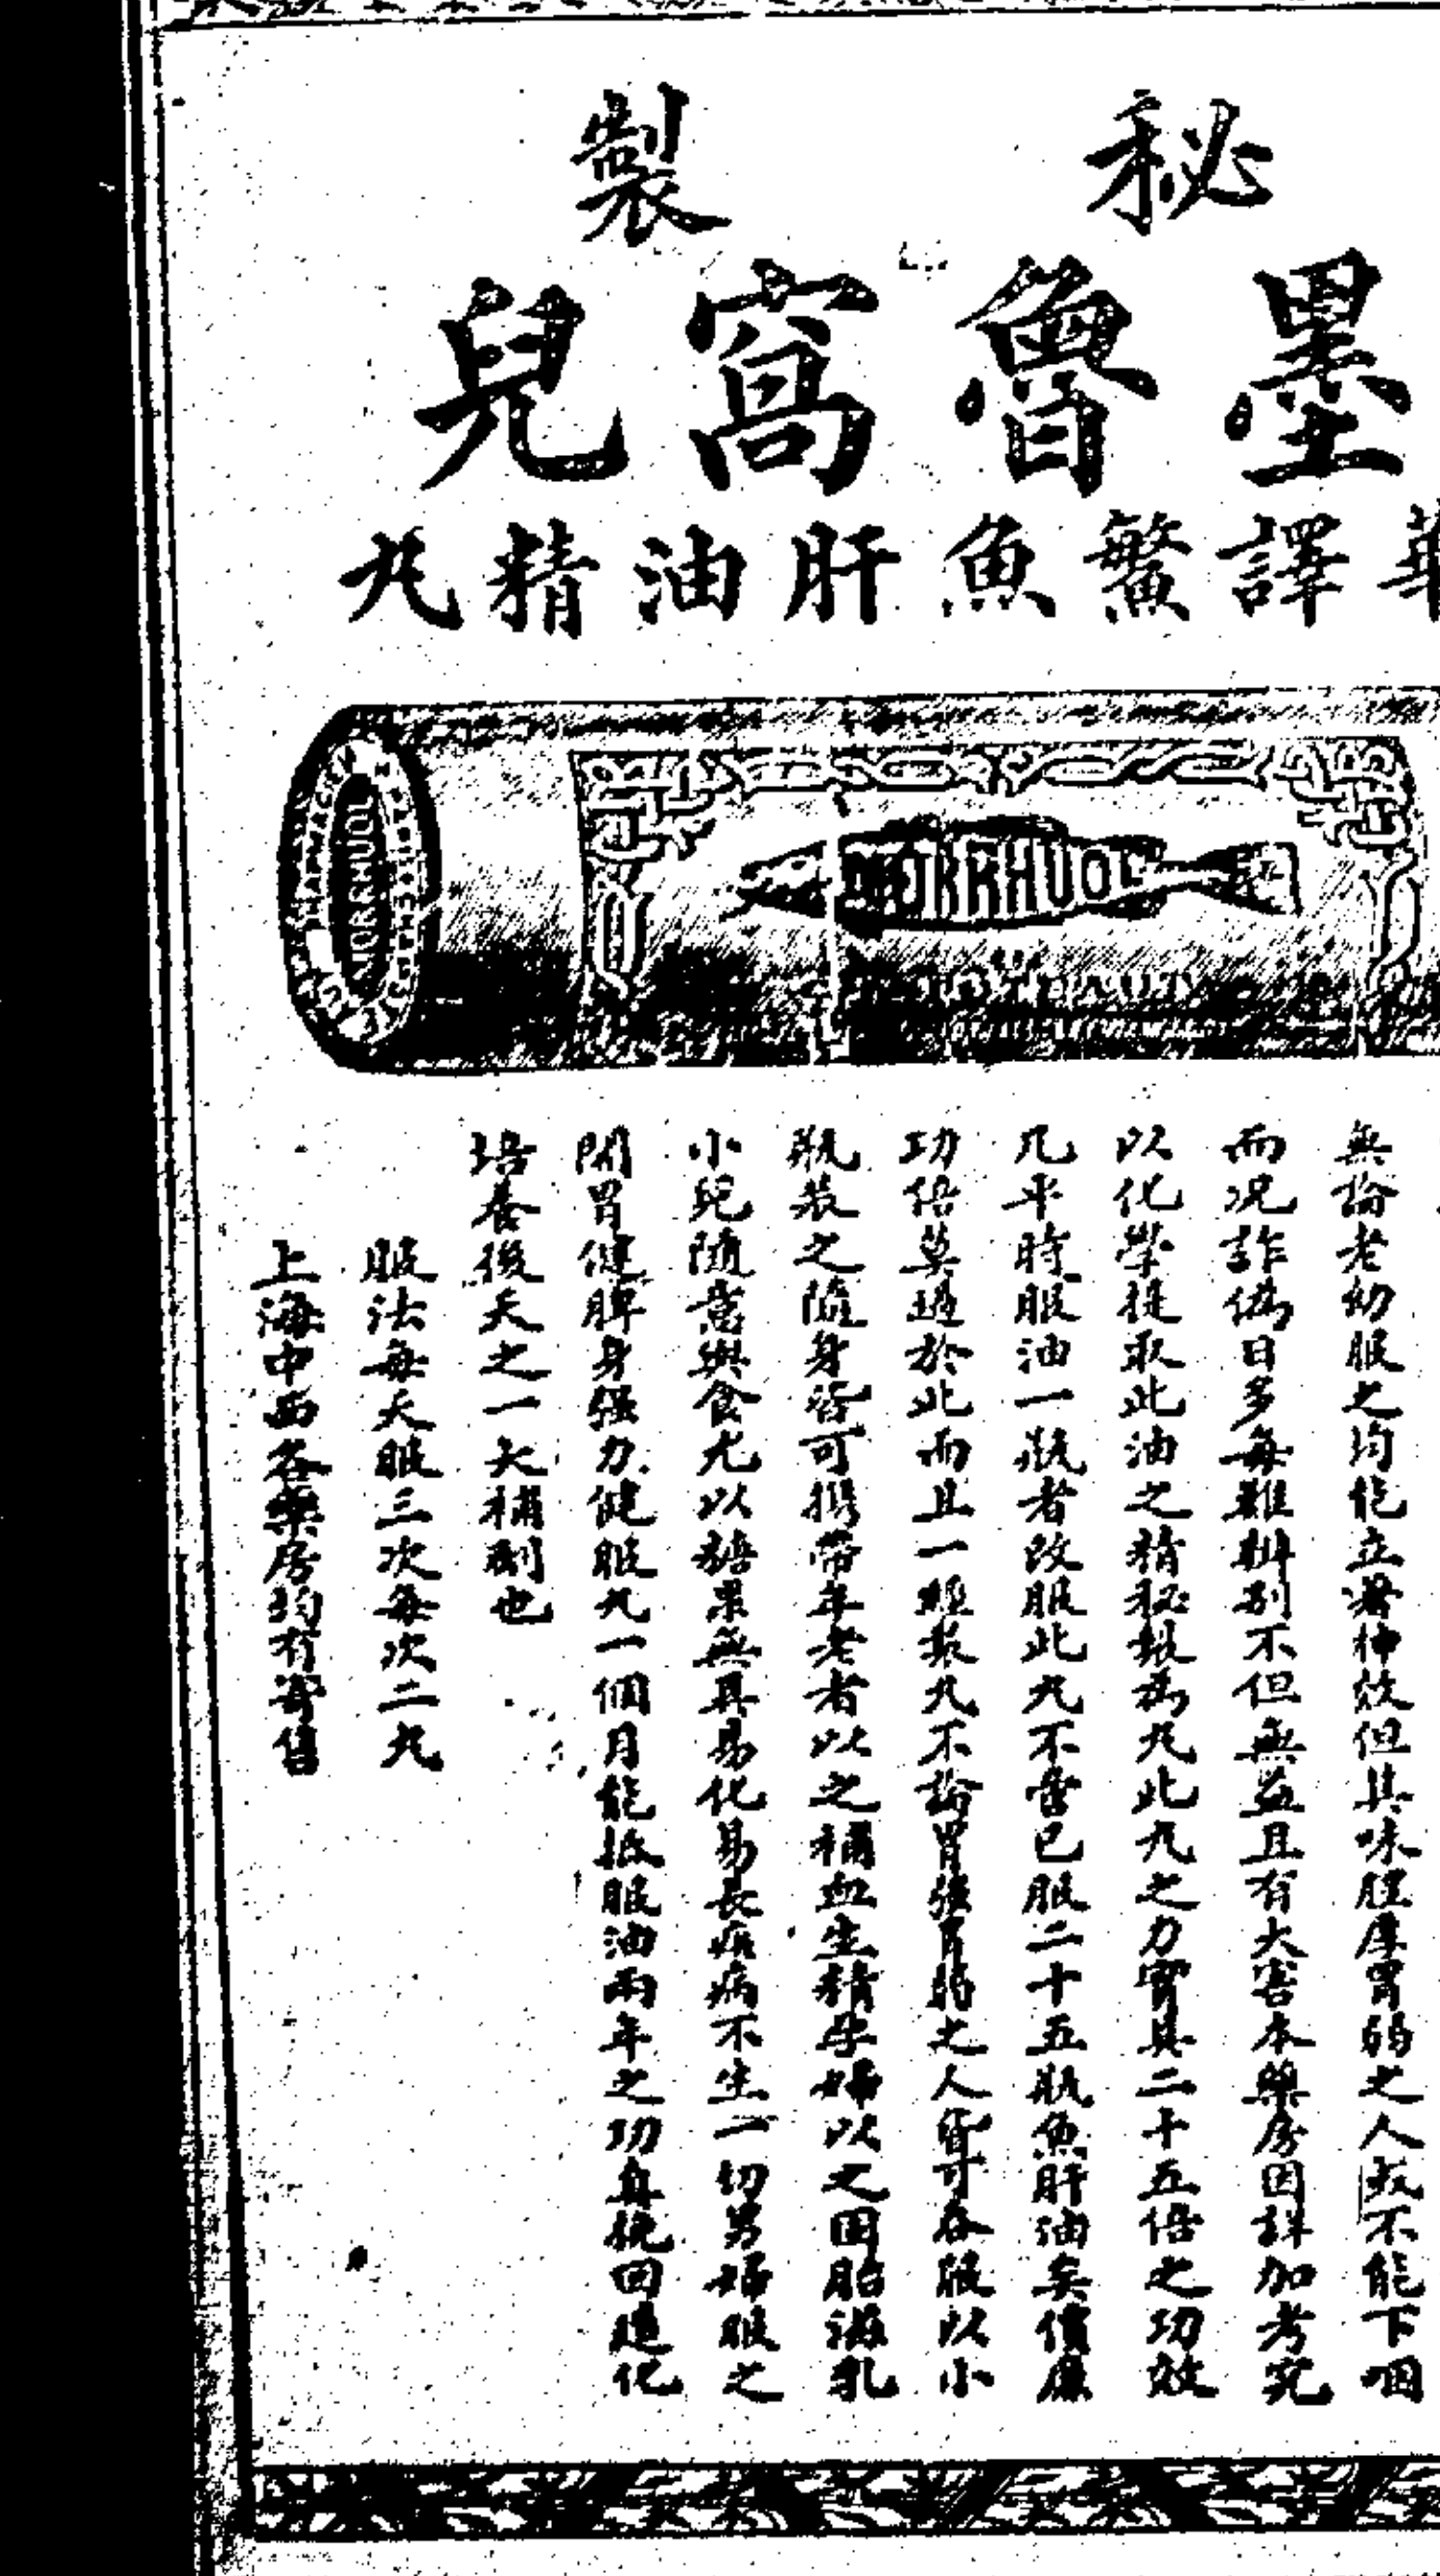 秘製
墨魯窩兒
譯鱉魚肝油精丸
MORRHUOL
MORRHUOL
無論老幼服之均能立著神效但其味腥厚胃弱之人或不能下咽
而况詐僞日多每難辨别不但無益且有大害本藥房因詳加考究
以化學提取此油之精秘製爲丸此丸之力實具二十五倍之功效
凡平時服油一瓶者改服此丸不啻已服二十五瓶魚肝油矣價廉
功倍莫過於此而且一經製丸不論胃强胃弱之人皆可吞服以小
瓶裝之隨身皆可攜帶年老者以之補血生精孕婦以之固胎滋乳
小兒隨意與食尤以糖果無異易化易長疾病不生一切男婦服之
開胃健脾身强力健服丸一個月能抵服油兩年之功真挽回造化
培養後天之一大補劑也
服法每天服三次每次二丸
上海中西各藥房均有寄售